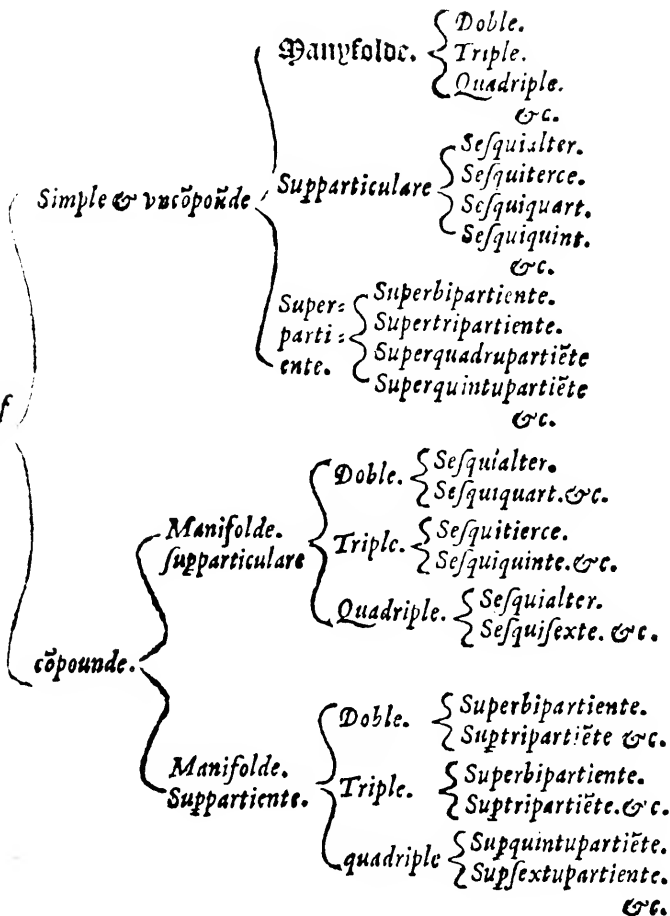 Manyfolde.
Doble.
Triple.
Quadriple.
&c.
Simple & vncõpoũde
Supparticulare
Seſquialter.
Seſquiterce.
Seſquiquart.
Seſquiquint.
&c.
Super=
parti=
ente.
Superbipartiente.
Supertripartiente.
Superquadrupartiẽte
Superquintupartiẽte
&c.
f
cõpounde.
Manifolde.
ſupparticulare
Doble.
Seſquialter.
Seſquiquart.&c.
Triple.
Seſquitierce.
Seſquiquinte.&c.
Quadriple.
Seſquialter.
Seſquiſexte. &c.
Manifolde.
Suppartiente.
Doble.
Superbipartiente.
Suptripartiẽte &c.
Triple.
Superbipartiente.
Suptripartiẽte.&c.
quadriple
Supquintupartiẽte.
Supſextupartiente.
&c.